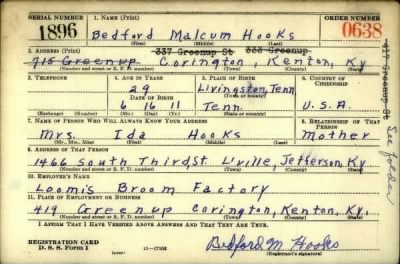 SERIAL NUMBER 1. NAME (Print) ORDER NUMBER
1896 Bedford Malcum Hooks 0638
(First) (Middle) (Last)
2. ADDRESS (Print) 337 Greenup St 333 Greenup
715 Greenup Covington, Kenton, Ky
(Number and street or R. F. D. number) (Town) (County) (State)
3. TELEPHONE 4. AGE IN YEARS 5. PLACE OF BIRTH 6. COUNTRY OF CITIZENSHIP
29 Livingston, Tenn
DATE OF BIRTH (Town or county)
6 16 11 Tenn. U.S.A.
(Exchange) (Number) (Mo.) (Day) (Yr.) (State or country)
7. NAME OF PERSON WHO WILL ALWAYS KNOW YOUR ADDRESS 8. RELATIONSHIP OF THAT PERSON
Mrs. Ida Hooks Mother
(Mr., Mrs., Miss) (First) (Middle) (Last)
9. ADDRESS OF THAT PERSON
1466 South Third, St L'ville, Jefferson, Ky
(Number and street or R. F. D. number) (Town) (County) (State)
10. EMPLOYER'S NAME
Loomis Broom Factory
11. PLACE OF EMPLOYMENT OR BUSINESS
419 Greenup Covington, Kenton, Ky.
(Number and street or R. F. D. number) (Town) (County) (State)
I AFFIRM THAT I HAVE VERIFIED ABOVE ANSWERS AND THAT THEY ARE TRUE.
REGISTRATION CARD
D. S. S. Form 1 (over) 16—17105 Bedford M Hooks
(Registrant's signature)
Greenup St
See folder